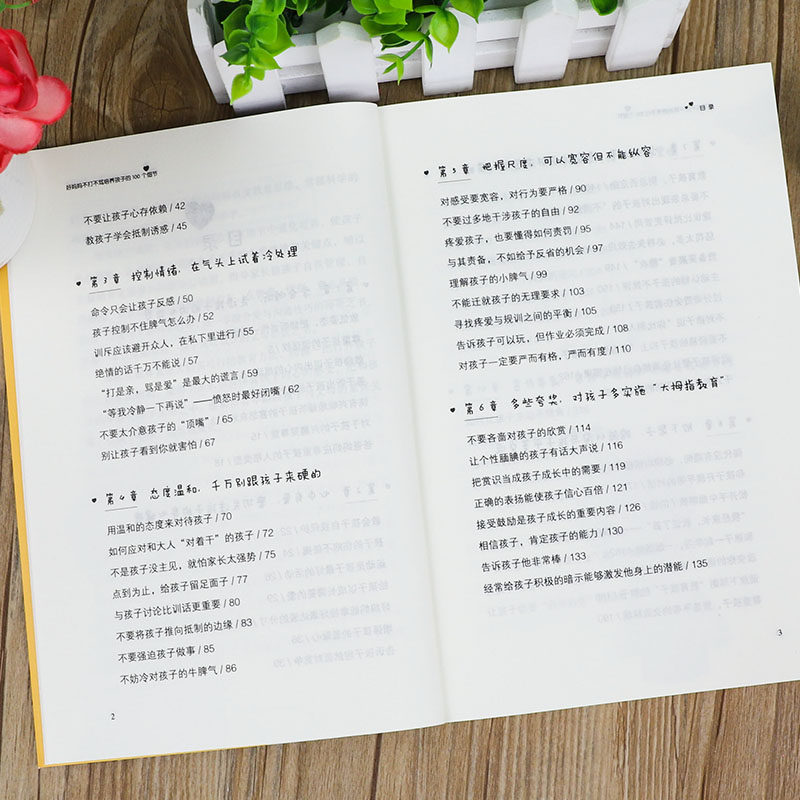 好妈妈不打不骂培养孩子的 100 个细节
不要让孩子心存依赖 / 42
教孩子学会抵制诱惑 / 45
第3章 控制情绪，在气头上试着冷处理
命令只会让孩子反感 / 50
孩子控制不住脾气怎么办 / 52
训斥应该避开众人，在私下里进行 / 55
绝情的话千万不能说 / 57
“打是亲，骂是爱”是最大的谎言 / 59
“等我冷静一下再说”——愤怒时最好闭嘴 / 62
不要太介意孩子的“顶嘴” / 65
别让孩子看到你就害怕 / 67
第4章 态度温和，千万别跟孩子来硬的
用温和的态度来对待孩子 / 70
如何应对和大人“对着干”的孩子 / 72
不是孩子没主见，就怕家长太强势 / 75
点到为止，给孩子留足面子 / 77
与孩子讨论比训话更重要 / 80
不要将孩子推向抵制的边缘 / 83
不要强迫孩子做事 / 85
不妨冷对孩子的牛脾气 / 86
2
目录
第5章 把握尺度，可以宽容但不能纵容
对感受要宽容，对行为要严格 / 90
不要过多地干涉孩子的自由 / 92
疼爱孩子，也要懂得如何责罚 / 95
与其责备，不如给予反省的机会 / 97
理解孩子的小脾气 / 99
不能迁就孩子的无理要求 / 103
寻找疼爱与规训之间的平衡 / 105
告诉孩子可以玩，但作业必须完成 / 108
对孩子一定要严而有格，严而有度 / 110
第6章 多些夸奖，对孩子多实施“大拇指教育”
不要吝啬对孩子的欣赏 / 114
让个性腼腆的孩子有话大声说 / 116
把赏识当成孩子成长中的需要 / 119
正确的表扬能使孩子信心百倍 / 121
接受鼓励是孩子成长的重要内容 / 126
相信孩子，肯定孩子的能力 / 130
告诉孩子他非常棒 / 133
经常给孩子积极的暗示能够激发他身上的潜能 / 135
3